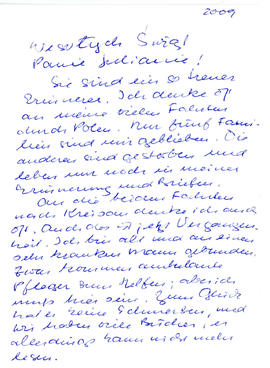 2009
Wesołych Świąt
Panie Julianie!
Sie sind ein so treuer
Erinnerer. Ich denke oft
an meine vielen Fahrten
durch Polen. Nur fünf Fami-
lien sind mir geblieben. Die
anderen sind gestorben und
leben nur noch in meiner
Erinnerung und Briefen.
An die beiden Fahrten
nach Kreisau denke ich auch
oft. Auch das ist jetzt Vergangen-
heit. Ich bin alt und an einen
sehr kranken Mann gebunden.
Zwar kommen ambulante
Pfleger zum Helfen; aber ich
muß hier sein. Zum Glück
hat er keine Schmerzen, und
wir haben viele Bücher; er
allerdings kann nicht mehr
lesen.